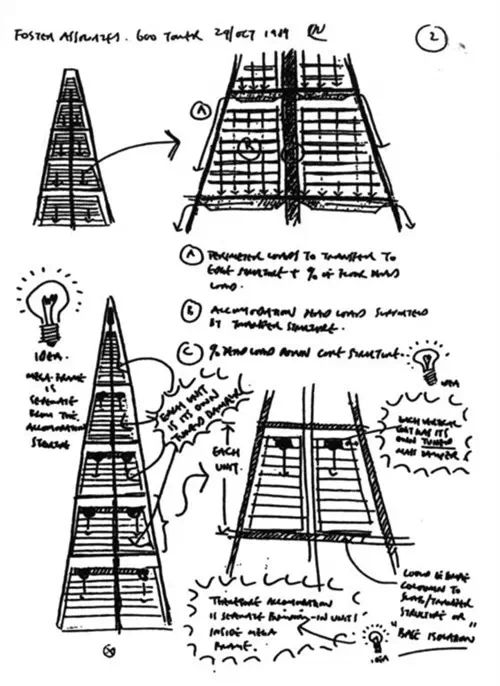 FOSTER ASSOCIATES. 600 TOWER 29/OCT 1989
2
A
B
A PERIMETER LOADS TO TRANSFER TO
EDGE STRUCTURE + % OF FLOOR DEAD
LOAD.
B ACCOMODATION DEAD LOAD SUPPORTED
BY TRANSFER STRUCTURE.
C % DEAD LOAD DOWN CORE STRUCTURE.
IDEA.
MEGA-FRAME
IS
SEPARATE
FROM THE
ACCOMODATION
STRUCTURE
EACH UNIT
IS ITS OWN
TUNED DAMPER
IDEA
EACH VERTICAL
UNIT HAS ITS
OWN TUNED
MASS DAMPER
EACH
UNIT.
COULD BE
COLUMN TO
SLAB/TRANSFER
STRUCTURE OR
"BASE ISOLATION"
THEREFORE ACCOMODATION
IS SEPARATE BUILDING-IN UNITS
INSIDE MEGA
FRAME.
IDEA